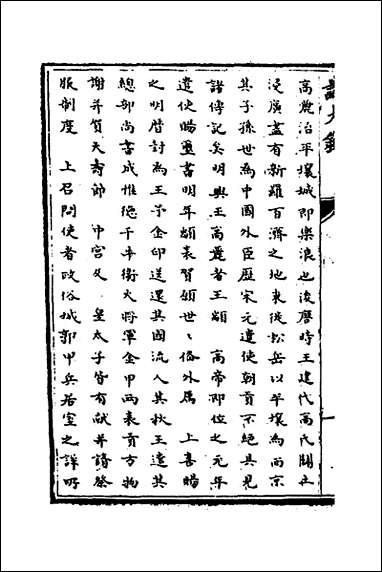 高麗治平壤城即樂浪也後唐時王建代高氏闢土
浸廣盖有新羅百濟之地東徙松岳以平壤為西京
其子孫世為中國外臣歷宋元遣使朝貢不絕具見
諸傳記矣明興王高麗者王顓 高帝即位之元年
遣使賜璽書明年顓表賀願世〻偹外属 上喜賜
之明曆封為王予金印送還其國流人其秋王遣其
總部尚書成惟德千牛衛大將軍金甲雨表貢方物
謝并賀天壽節 中宮及 皇太子皆有献并請祭
服制度 上召問使者政俗城郭甲兵居室之詳所